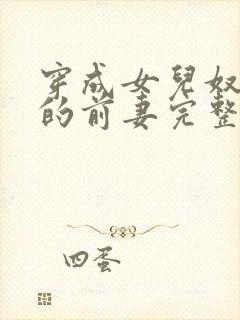 穿成女兒奴
的前妻完整
四蛋